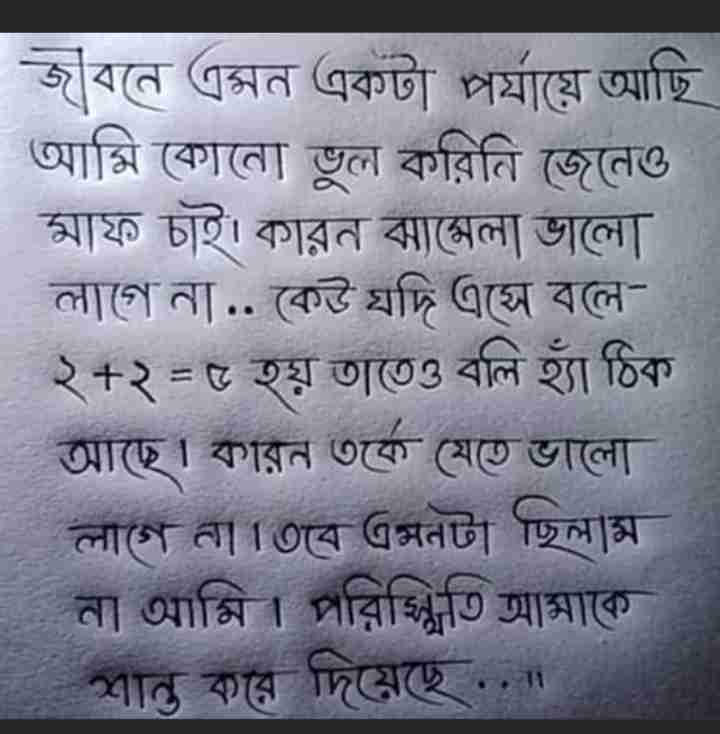 জীবনে এমন একটা পর্যায়ে আছি
আমি কোনো ভুল করিনি জেনেও
মাফ চাই। কারন ঝামেলা ভালো
লাগে না.. কেউ যদি এসে বলে-
২+২=৫ হয় তাতেও বলি হ্যাঁ ঠিক
আছে। কারন তর্কে যেতে ভালো
লাগে না। তবে এমনটা ছিলাম
না আমি। পরিস্থিতি আমাকে
শান্ত করে দিয়েছে..॥